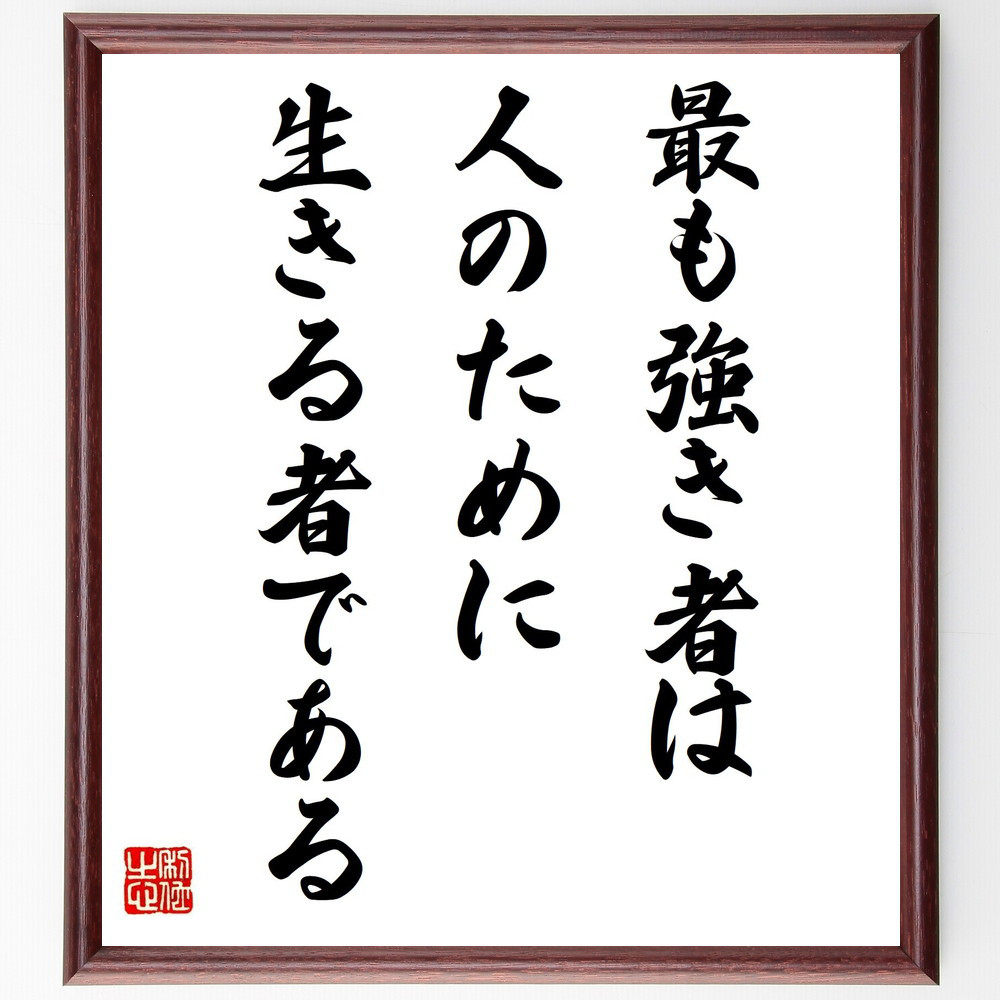 最も強き者は
人のために
生きる者である